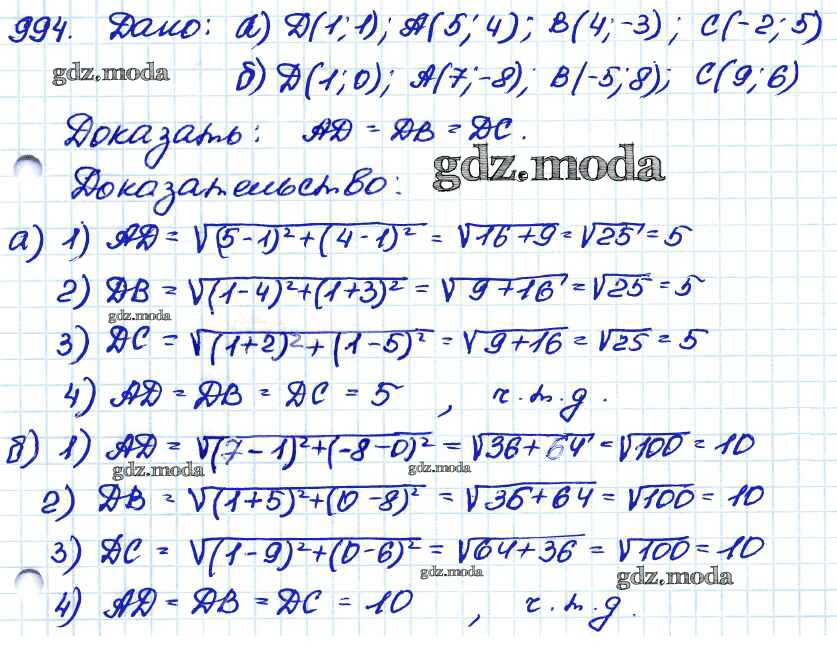 994. Дано: а) D(1; 1); A(5; 4); B(4; -3); C(-2; 5)
gdz.moda
б) D(1; 0); A(7; -8); B(-5; 8); C(9; 6)
Доказать: AD = DB = DC.
gdz.moda
Доказательство:
а) 1) AD = √(5-1)²+(4-1)² = √16+9 = √25 = 5
2) DB = √(1-4)²+(1+3)² = √9+16 = √25 = 5
gdz.moda
3) DC = √(1+2)²+(1-5)² = √9+16 = √25 = 5
4) AD = DB = DC = 5, ч.т.д.
б) 1) AD = √(7-1)²+(-8-0)² = √36+64 = √100 = 10
gdz.moda gdz.moda
2) DB = √(1+5)²+(0-8)² = √36+64 = √100 = 10
3) DC = √(1-9)²+(0-6)² = √64+36 = √100 = 10
gdz.moda gdz.moda
4) AD = DB = DC = 10, ч.т.д.